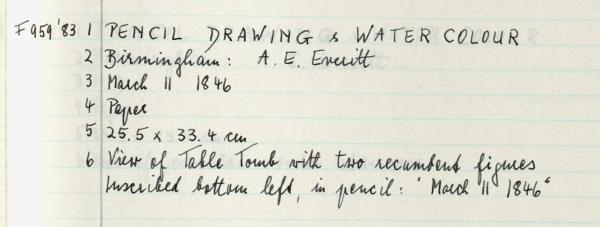 F959'83 1 PENCIL DRAWING & WATERCOLOUR
2 Birmingham: A. E. Everitt
3 March 11 1846
4 Paper
5 25.5 x 33.4 cm
6 View of Table Tomb with two recumbent figures
Inscribed bottom left, in pencil: "March 11 1846"